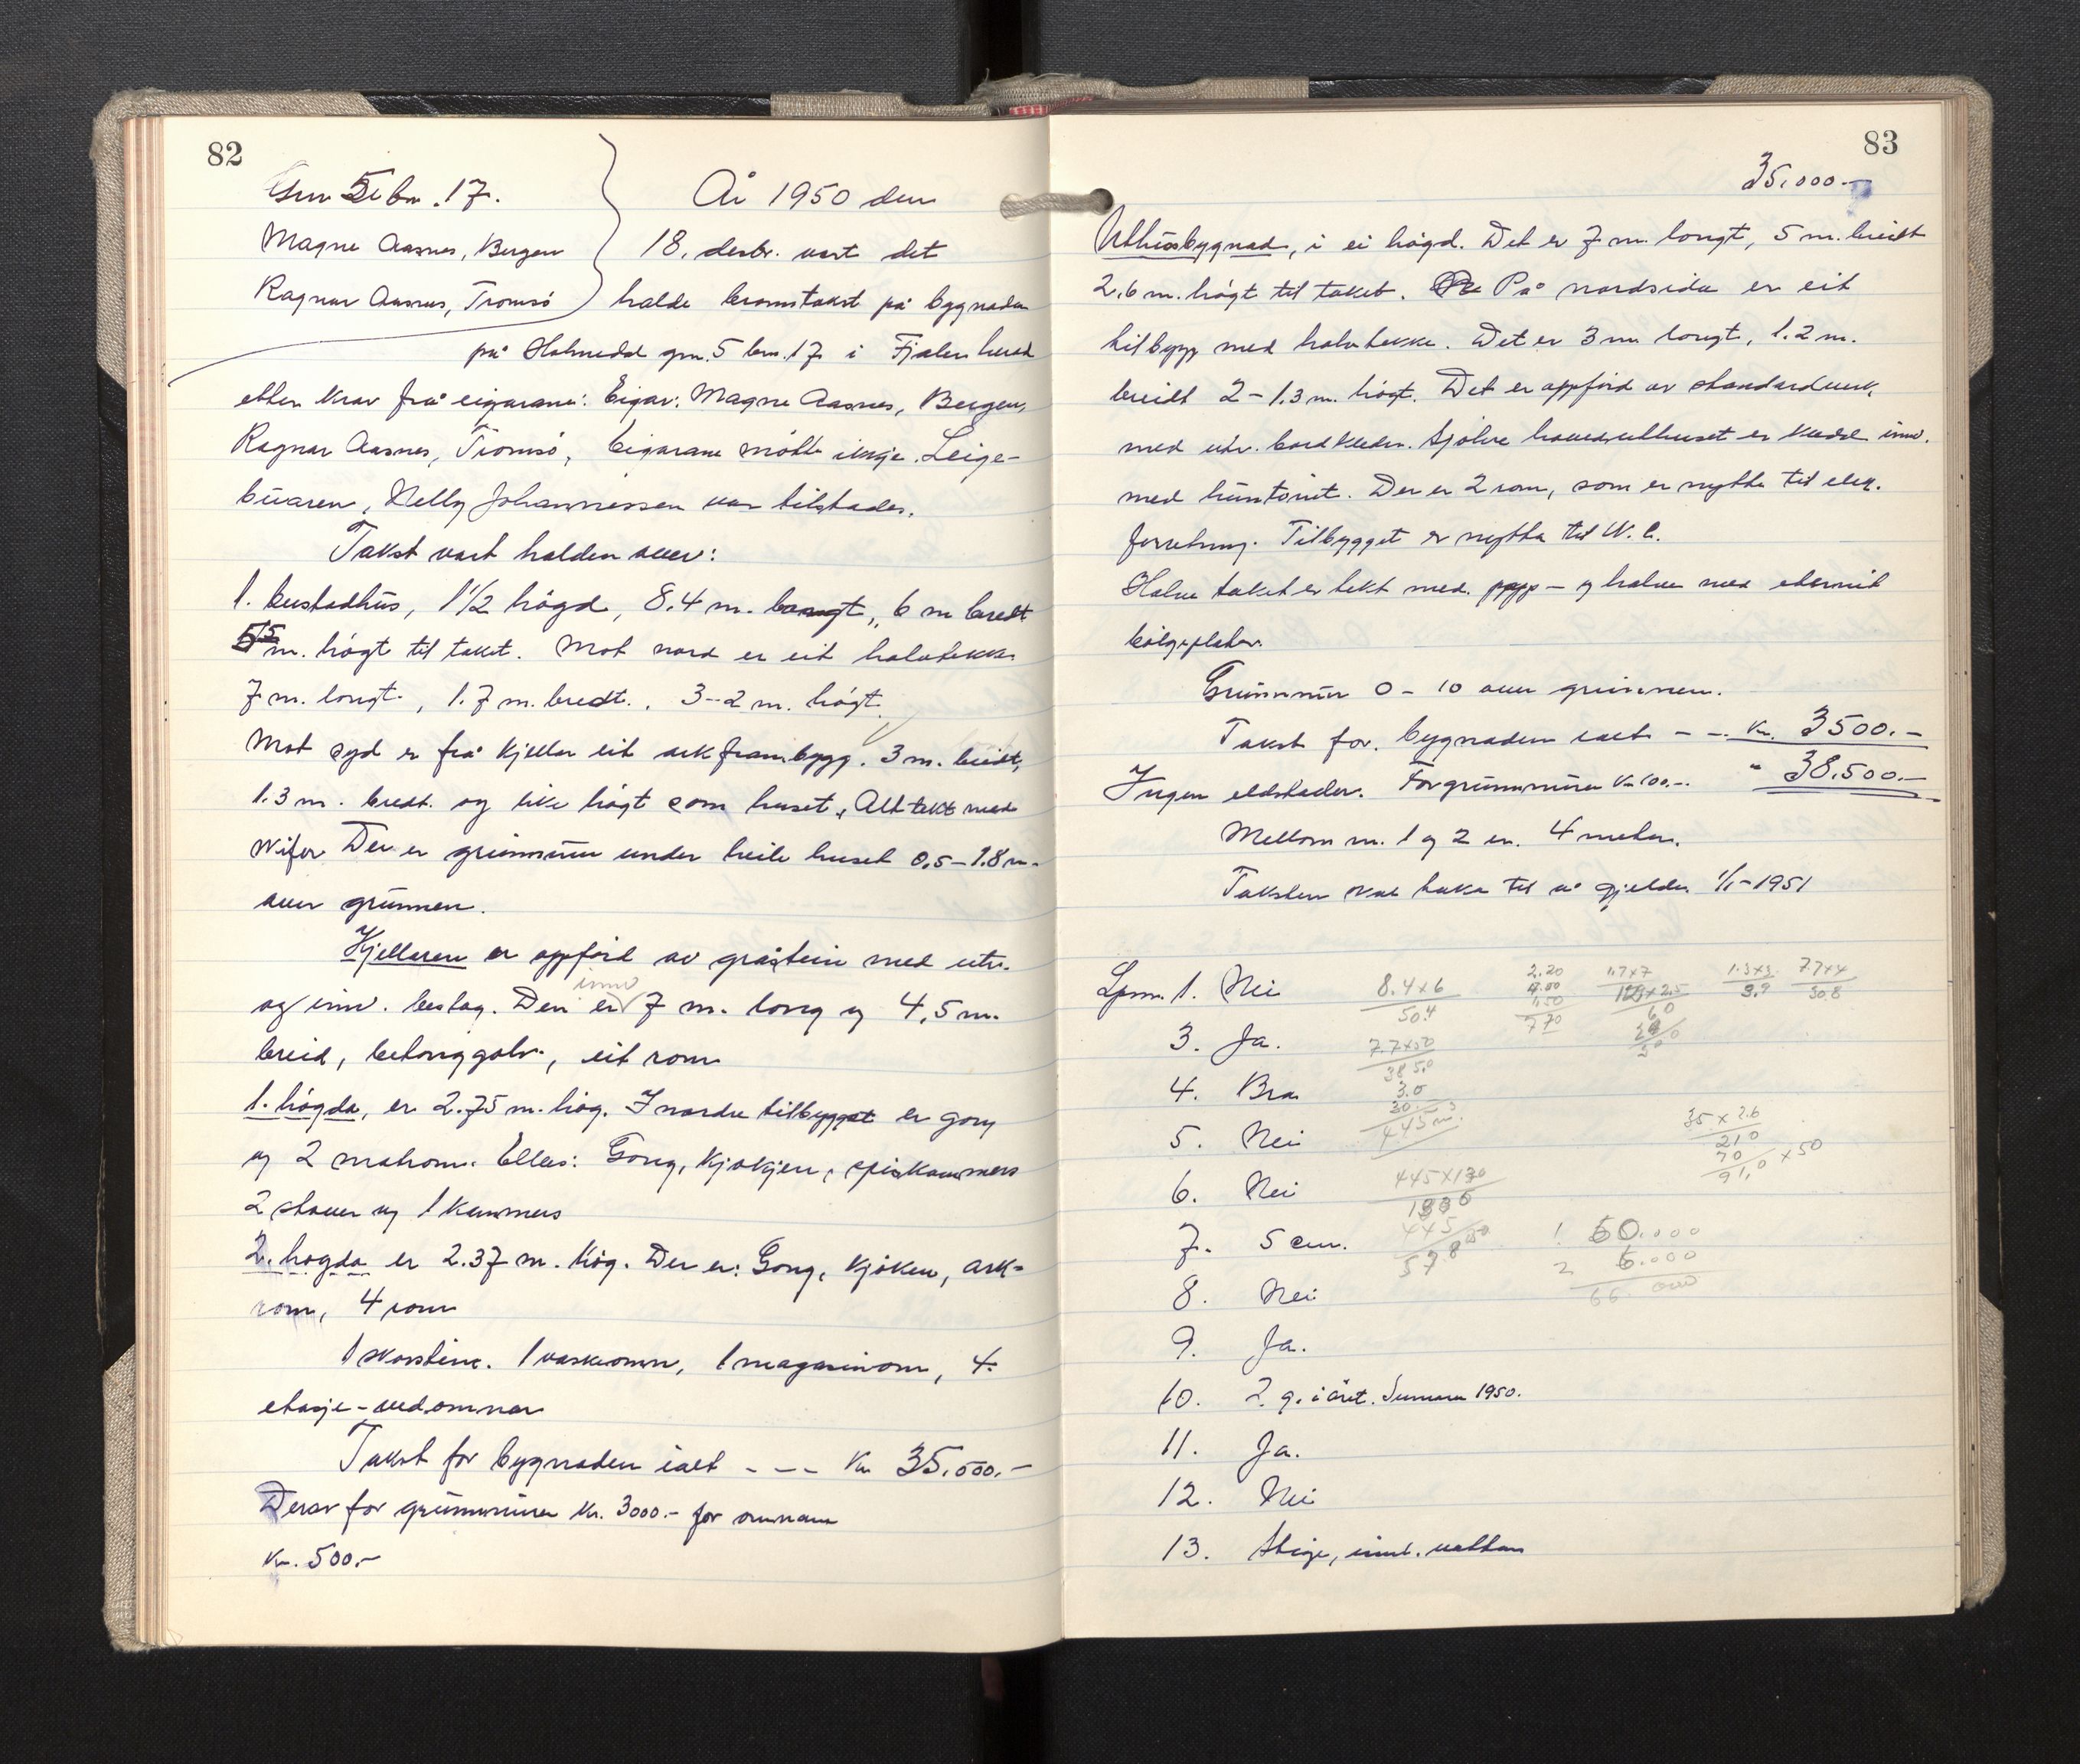 82
Gnr 5 bn. 17.
Magne Aasnes, Bergen
Ragnar Aasnes, Tromsö
År 1950 den
18. desbr. vart det
halde branntakst på bygnaden
på Holmedal gnr. 5 brn. 17 i Fjaler herad
etter krav frå eigarane: Eigar: Magne Aasnes, Bergen,
Ragnar Aasnes, Tromsö, Eigarane mötte ikkje. Leige-
buaren, Nelly Johannessen var tilstades.
Takst vart halden over:
1. bustadhus, 1 1/2 högd, 8.4 m. langt, 6 m bredt
m. högt til taket. Mot nord er eit halvtekke
7 m. langt, 1.7 m. bredt. 3-2 m. högt.
Mot syd er frå kjellar eit arkframbygg. 3 m. breidt,
1.3 m. bredt. og like högt som huset. Alt tekt med
skifer Der er grunnmur under heile huset 0,5-1.8 m.
over grunnen.
Kjellaren er oppförd av gråstein med utv.
og innv. beslag. Den er innv 7 m. lang og 4,5 m.
breid, betonggolv, eit rom
1. högda, er 2.75 m. hög. I nordre tilbygget er gang
og 2 matrom. Elles: Gang, kjökjen, spiskammers
2 stover og 1 kammers
2. högda er 2.37 m. hög. Der er: Gang, kjöken, ark-
rom, 4 rom
1 skorstine. 1 vaskeomn, 1 magasinomn, 4
etasje-vedomnar
Takst for bygnaden ialt - - - Kr 35.000.-
Derav for grunnmuren kr. 3000.- for omnane
kr. 500.-
83
35.000.-
Uthusbygnad, i ei högd. Det er 7 m. langt, 5 m. breidt
2,6 m. högt til taket. På nordsida er eit
tilbygg med halvtekke. Det er 3 m langt, 1.2 m.
breidt 2-1.3 m. högt. Det er oppförd av standardverk,
med utv. bordkleden. Sjölve hoveduthuset er kledd innv.
med huntonit. Der er 2 rom, som er nytta til elek.
forretning. Tilbygget er nytta til W.C.
Halve taket er tekt med papp - og halve med eternit
bölgeplater.
Grunnmur 0-10 over grunnen.
Takst for bygnaden ialt - - Kr. 3500.-
Ingen eldstader. For grunnmuren kr 100.- " 38.500.-
Mellom nr. 1 og 2 er 4 meter.
Taksten skal taka til å gjelda 1/1-1951
Spm. 1. Nei
3. Ja.
4. Bra
5. Nei
6. Nei
7. 5 cm.
8. Nei
9. Ja.
10. 2 g. i året. Sumaren 1950.
11. Ja.
12. Nei
13. Stige, innl. vatten
8.4x6
50.4
7.7x50
385.0
3.0
30
445 m
445x130
1.7x7
1.3x3
3.9
7.7x4
30.8
2.20
7.70
35 x 2.6
210
70
91,0 x50
1 60.000
2 6.000
66.000